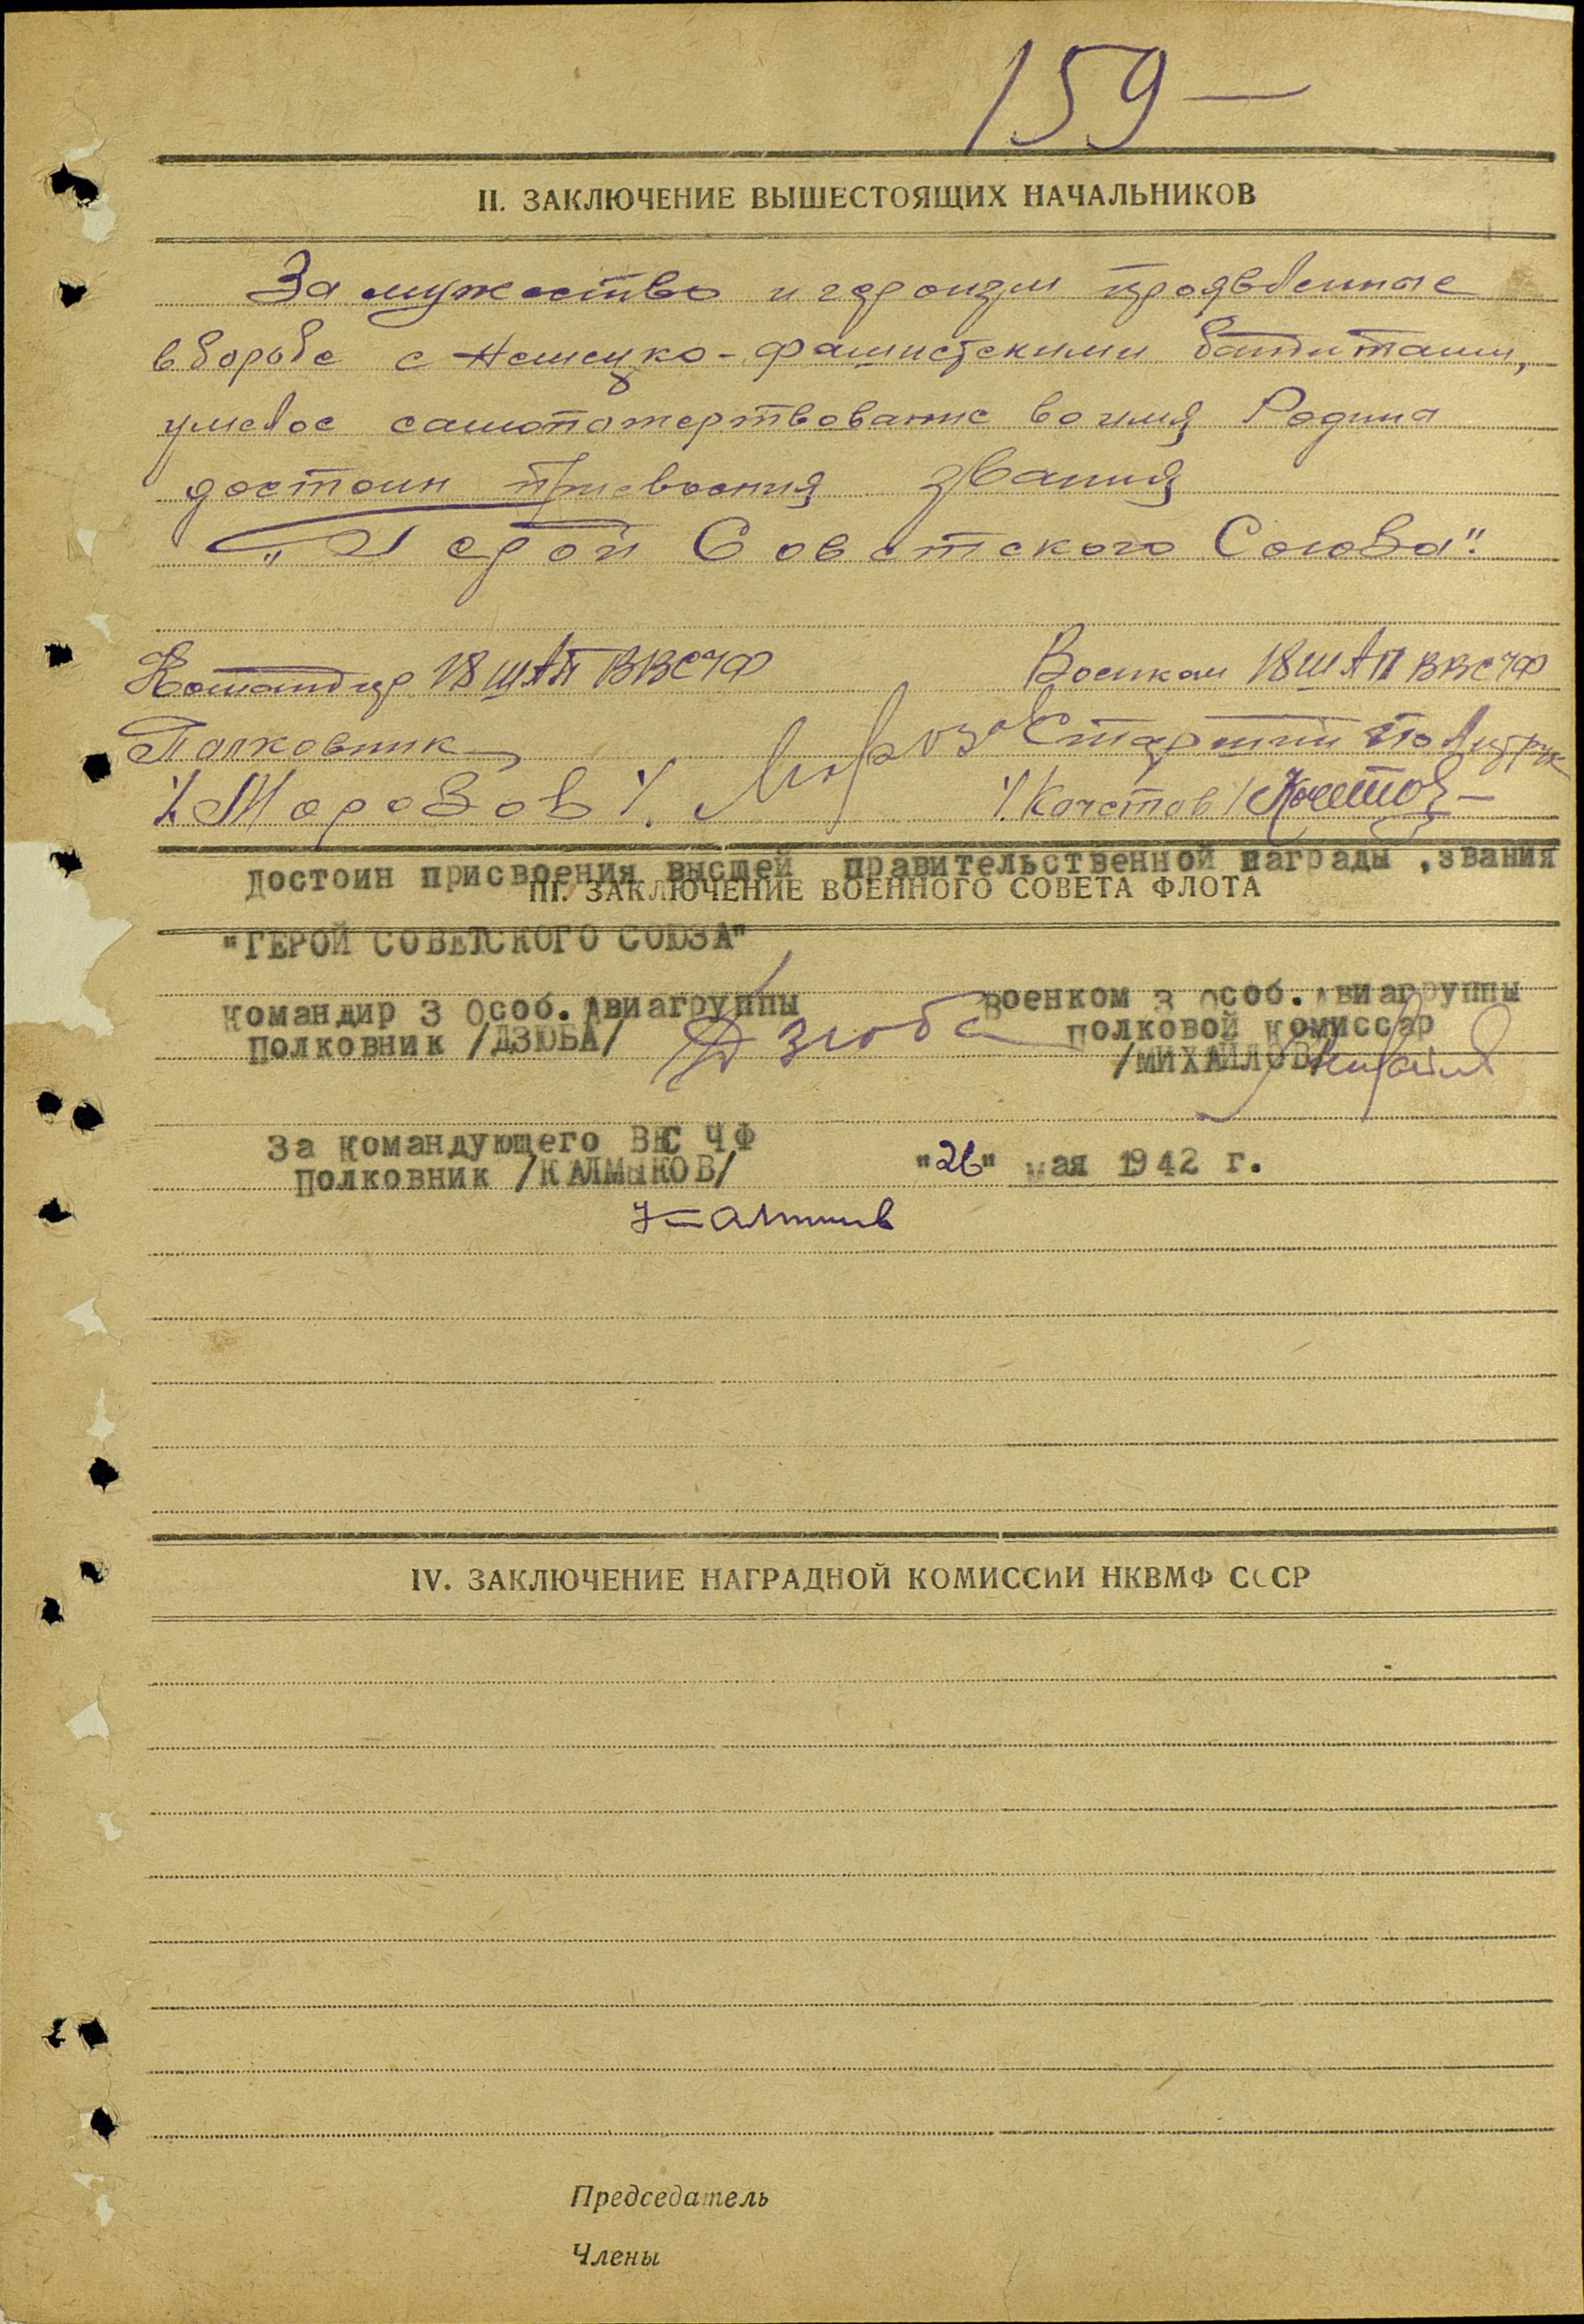 159—
II. ЗАКЛЮЧЕНИЕ ВЫШЕСТОЯЩИХ НАЧАЛЬНИКОВ
За мужество и героизм проявленные
в борьбе с Немецко-фашистскими бандитами,
умелое самопожертвование во имя Родина
достоин присвоения звания
„Герой Советского Союза".
Командир 18 ШАП ВВС ЧФ Военком 18 ШАП ВВС ЧФ
Полковник Старший Политрук
/Морозов/. Морозов /Кочетов/ Кочетов
Достоин присвоения высшей правительственной награды ,звания
III. ЗАКЛЮЧЕНИЕ ВОЕННОГО СОВЕТА ФЛОТА
"ГЕРОЙ СОВЕТСКОГО СОЮЗА"
Командир 3 Особ. Авиагруппы Военком 3 Особ. Авиагруппы
Полковник /ДЗЮБА/ Дзюба Полковой Комиссар
/МИХАЙЛОВ/
За Командующего ВВС ЧФ
Полковник /КАЛМЫКОВ/ "26" мая 1942 г.
IV. ЗАКЛЮЧЕНИЕ НАГРАДНОЙ КОМИССИИ НКВМФ СССР
Председатель
Члены